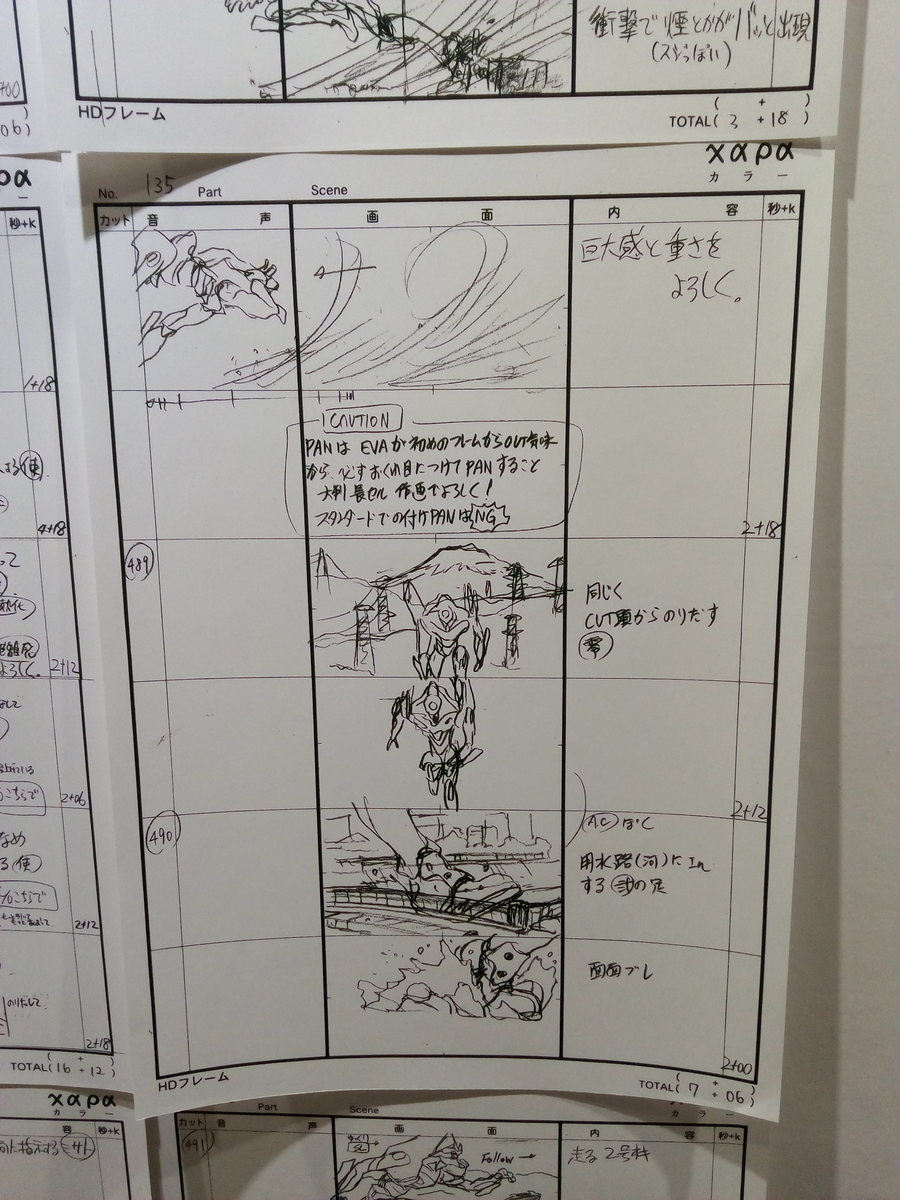 衝撃で煙とかがバッと出現
(スジっぽい)
HDフレーム
TOTAL( 3 + 18 )
700
06)
ρα
ー
秒+k
1+18
4+18
2+12
よろしく。
2+06
こちらで
なめ
2+12
のりだして
2+18
TOTAL(16 + 12)
χαρα
カラー
No. 135 Part Scene
カット 音 声 画 面 内 容 秒+k
巨大感と重さを
よろしく。
CAUTION
PANは EVAが初めのフレームからOUT気味
から、必ずおくれ目につけてPANすること
大判長セル 作画でよろしく!
スタンダードでの付けPANはNG
2+18
489
同じく
CUT頭からのりだす
零
2+12
490
(A.C)ぽく
用水路(河)にIn
する弐の足
画面ブレ
2+00
HDフレーム
TOTAL( 7 + 06 )
χαρα
カラー
容 秒+k
Part Scene
カット 音 声 画 面 内 容 秒+k
491
Follow →
走る 2号機